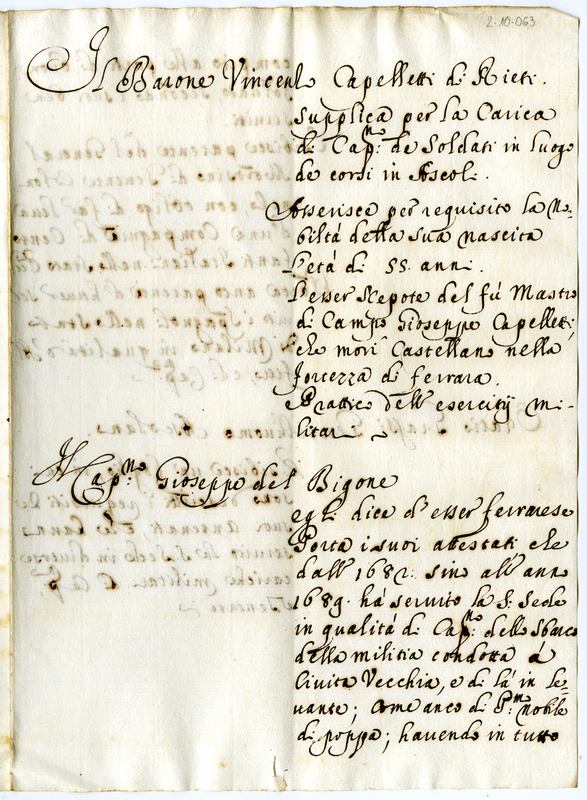 2-10-063
Il Barone Vincenzo Capelletti di Rieti.
supplica per la Carica
di Cap:no de Soldati in luogo
de corsi in Ascoli.
Asserisce per requisito la No=
biltà della sua nascita
L'età di 55. anni.
L'esser Nepote del fù Mastro
di Campo Gioseppe Capelletti,
che morì Castellano nella
fortezza di ferrara.
Prattico dell' esercitij mi-
litari
Il Cap:no Gioseppe del Bigone
egli dice d'esser ferrarese
Porta i suoi attestati, che
dall' 1682. sino all' anno
1689. há servito la S: Sede
in qualità di Cap:no dello Sbarco
della militia condotta à
Civita Vecchia, e di là in le=
vante; come anco di P:mo nobile
di poppa; havendo in tutto